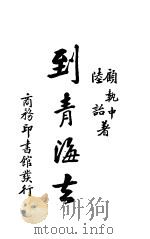 顾執中
陸詒 著
到青海去
商務印書館發行
www.duxiu.com